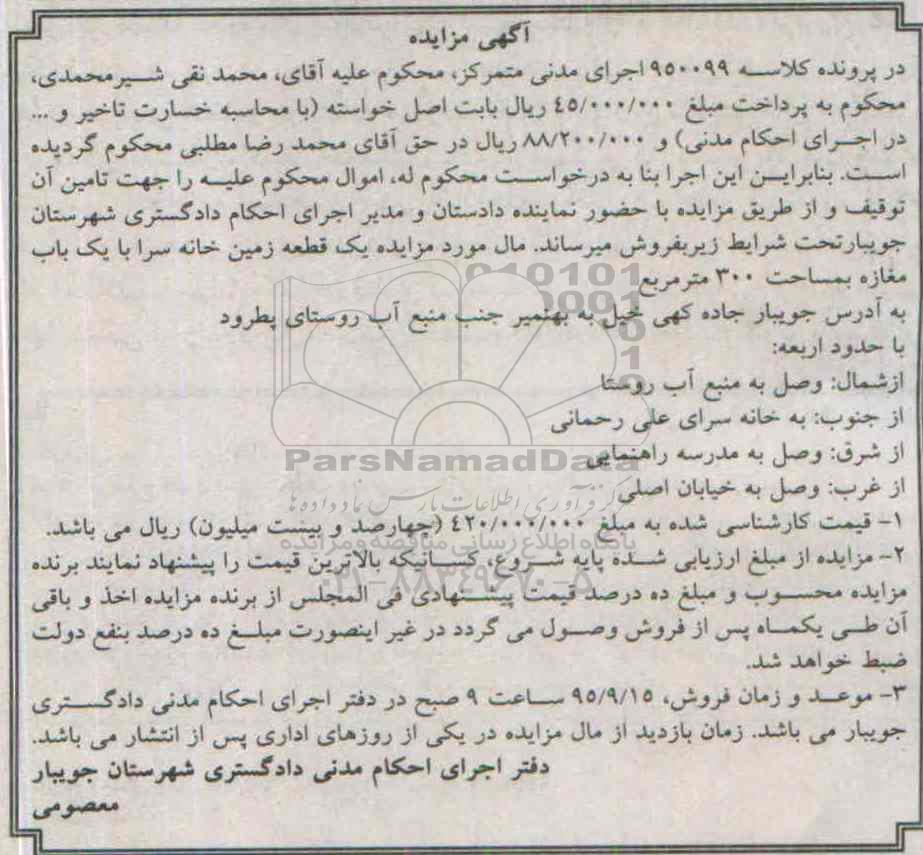 آگهی مزایده
در پرونده کلاسه ۹۵۰۰۹۹ اجرای مدنی متمرکز، محکوم علیه آقای، محمد نقی شیرمحمدی،
محکوم به پرداخت مبلغ ۴۵/۰۰۰/۰۰۰ ریال بابت اصل خواسته (با محاسبه خسارت تاخیر و ...
در اجرای احکام مدنی) و ۸۸/۲۰۰/۰۰۰ ریال در حق آقای محمد رضا مطلبی محکوم گردیده
است. بنابراین این اجرا بنا به درخواست محکوم له، اموال محکوم علیه را جهت تامین آن
توقیف و از طریق مزایده با حضور نماینده دادستان و مدیر اجرای احکام دادگستری شهرستان
جویبارتحت شرایط زیربفروش میرساند. مال مورد مزایده یک قطعه زمین خانه سرا با یک باب
مغازه بمساحت ۳۰۰ مترمربع
به آدرس جویبار جاده کهی خیل به بهنمیر جنب منبع آب روستای پطرود
با حدود اربعه:
ازشمال: وصل به منبع آب روستا
از جنوب: به خانه سرای علی رحمانی
از شرق: وصل به مدرسه راهنمایی
ParsNamadData
از غرب: وصل به خیابان اصلی
مرکز فرآوری اطلاعات پارس نماد داده ها
۱- قیمت کارشناسی شده به مبلغ ۴۲۰/۰۰۰/۰۰۰ (چهارصد و بیست میلیون) ریال می باشد.
پایگاه اطلاع رسانی مناقصه و مزایده
۲- مزایده از مبلغ ارزیابی شده پایه شروع، کسانیکه بالاترین قیمت را پیشنهاد نمایند برنده
۰۲۱-۸۸۳۴۹۶۷۰-۵
مزایده محسوب و مبلغ ده درصد قیمت پیشنهادی فی المجلس از برنده مزایده اخذ و باقی
آن طی یکماه پس از فروش وصول می گردد در غیر اینصورت مبلغ ده درصد بنفع دولت
ضبط خواهد شد.
۳- موعد و زمان فروش، ۹۵/۹/۱۵ ساعت ۹ صبح در دفتر اجرای احکام مدنی دادگستری
جویبار می باشد. زمان بازدید از مال مزایده در یکی از روزهای اداری پس از انتشار می باشد.
دفتر اجرای احکام مدنی دادگستری شهرستان جویبار
معصومی